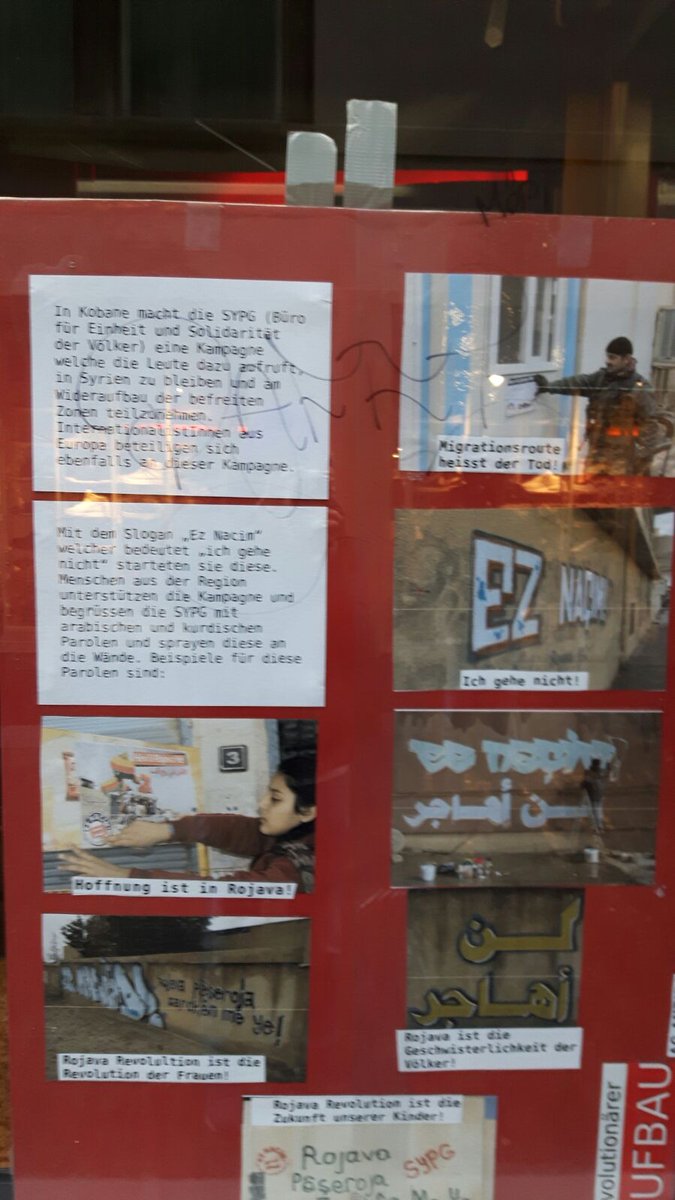 In Kobane macht die SYPG (Büro
für Einheit und Solidarität
der Völker) eine Kampagne
welche die Leute dazu aufruft,
in Syrien zu bleiben und am
Wideraufbau der befreiten
Zonen teilzunehmen.
Internationalistinnen aus
Europa beteiligen sich
ebenfalls an dieser Kampagne.
Mit dem Slogan „Ez Nacim"
welcher bedeutet „ich gehe
nicht" starteten sie diese.
Menschen aus der Region
unterstützen die Kampagne und
begrüssen die SYPG mit
arabischen und kurdischen
Parolen und sprayen diese an
die Wände. Beispiele für diese
Parolen sind:
3
Hoffnung ist in Rojava!
Pêşeroja
me ye!
Rojava Revolultion ist die
Revolution der Frauen!
Migrationsroute
heisst der Tod!
EZ NAÇIM
Ich gehe nicht!
لن أهاجر
لن
أهاجر
Rojava ist die
Geschwisterlichkeit der
Völker!
Rojava Revolution ist die
Zukunft unserer Kinder!
Rojava
Pêşeroja
SYPG
volutionärer
UFBAU